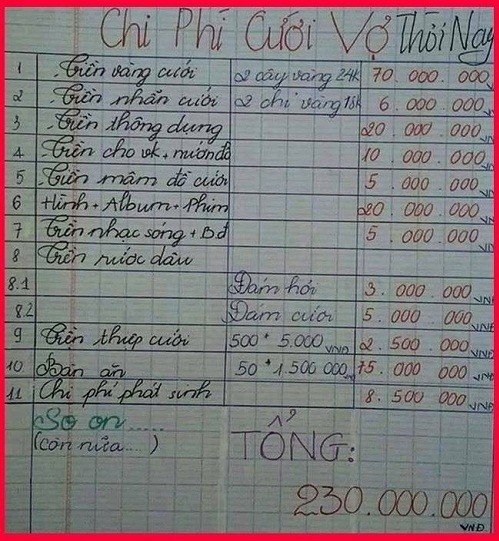 Chi Phí Cưới Vợ Thời Nay
1 Tiền vàng cưới 2 cây vàng 24k 70.000.000 VNĐ
2 Tiền nhẫn cưới 2 chỉ vàng 18k 6.000.000 VNĐ
3 Tiền thông dụng 20.000.000 VNĐ
4 Tiền cho vk + mướn đồ 10.000.000 VNĐ
5 Tiền mâm đồ cưới 5.000.000 VNĐ
6 Hình + Album + Phim 20.000.000 VNĐ
7 Tiền nhạc sống + Bđ 5.000.000 VNĐ
8 Tiền rước dâu
8.1 Đám hỏi 3.000.000 VNĐ
8.2 Đám cưới 5.000.000 VNĐ
9 Tiền thiệp cưới 500 * 5.000 VNĐ 2.500.000 VNĐ
10 Bàn ăn 50 * 1.500 000 VNĐ 75.000.000 VNĐ
11 Chi phí phát sinh 8.500 000 VNĐ
So on.....
(còn nữa....) TỔNG:
230.000.000
VNĐ.